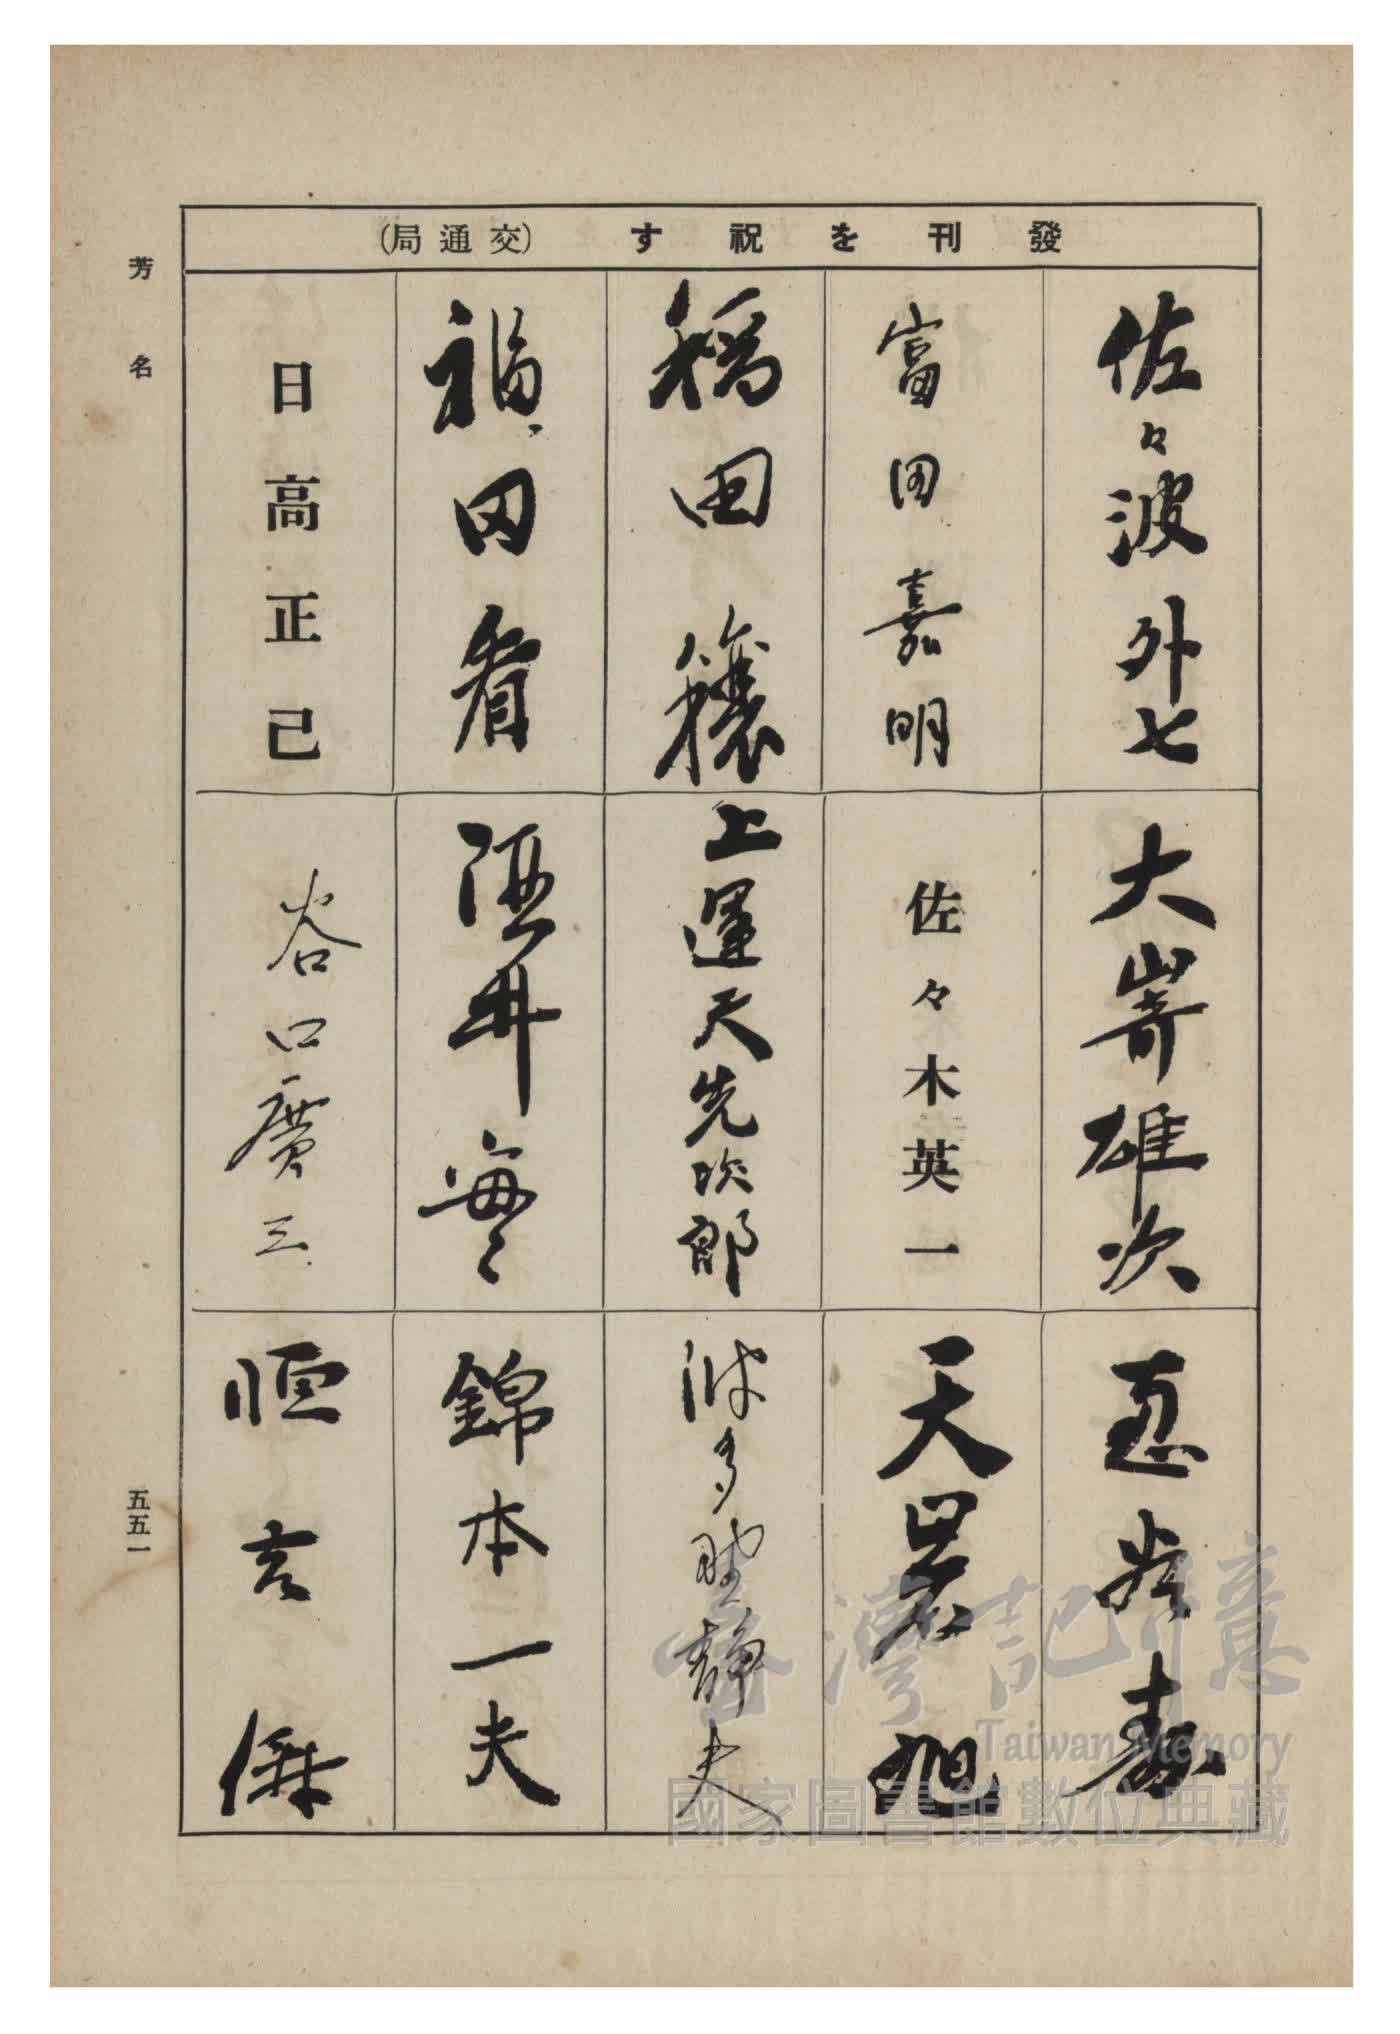 發刊を祝す（交通局）
佐々波外七
富田嘉明
稲田穰
福田眉
日高正己
大嵜雄次
佐々木英一
上運天先次郎
酒井寧
谷口廣三
天晨旭
波多野靜夫
錦本一夫
芳名
五五一
臺灣記憶
Taiwan Memory
國家圖書館數位典藏